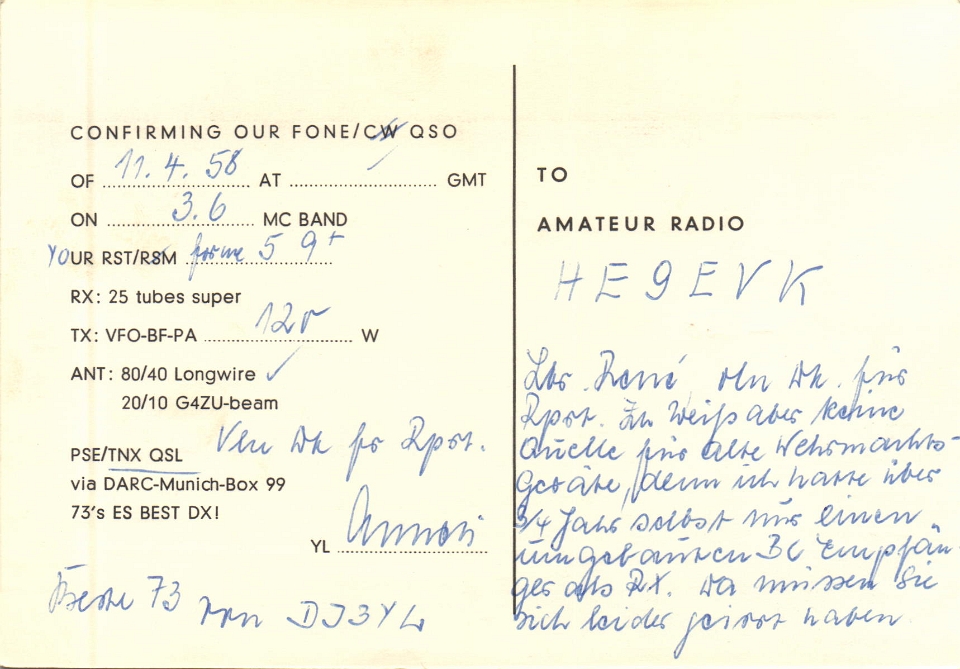 CONFIRMING OUR FONE/CW QSO
OF 11. 4. 58 AT GMT
ON 3.6 MC BAND
YOUR RST/RSM fone 5 9+
RX: 25 tubes super
TX: VFO-BF-PA 120 W
ANT: 80/40 Longwire ✓
20/10 G4ZU-beam
PSE/TNX QSL Vln Dk fr Rprt.
via DARC-Munich-Box 99
73's ES BEST DX!
YL Annori
Beste 73 von DJ3YL
TO
AMATEUR RADIO
HE9EVK
Lbr. René, vln Dk. für
Rprt. Ich weiß aber keine
Quelle für alte Wehrmachts-
Geräte, denn ich hatte über
3/4 Jahr selbst nur einen
umgebauten BC Empfän-
ger als RX. Da müssen Sie
sich leider geirrt haben